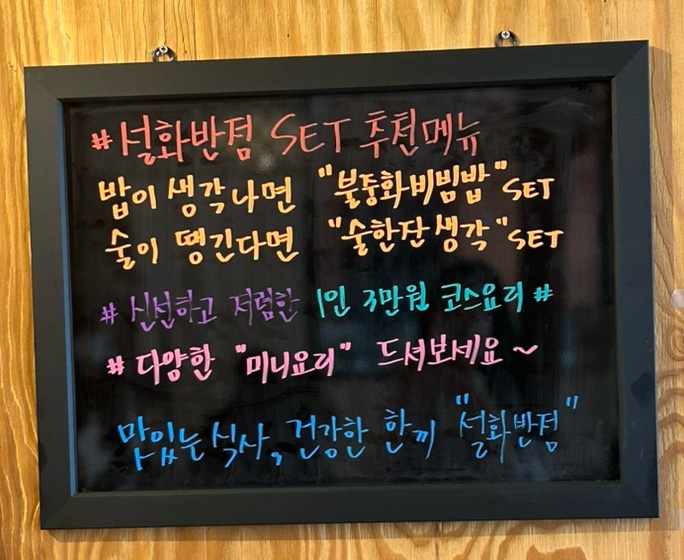 # 설화반점 SET 추천메뉴
밥이 생각나면 "불중화비빔밥" SET
술이 땡긴다면 "술한잔 생각" SET
# 신선하고 저렴한 1인 3만원 코스요리 #
# 다양한 "미니요리" 드셔보세요 ~
맛있는 식사, 건강한 한끼 "설화반점"